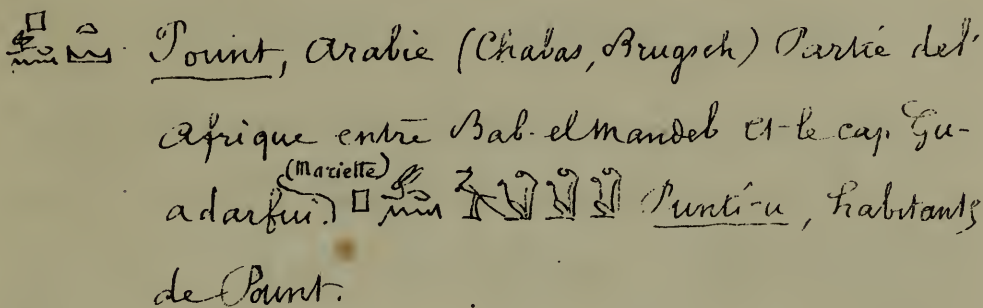 𓊪𓃹𓈖𓏏𓈉 Pount, Arabie (Chabas, Brugsch) Partie de l'
Afrique entre Bab-el mandeb et le cap Gu-
(Mariette)
adarfui) 𓊪𓃹𓈖 Punti-u, habitants
de Pount.